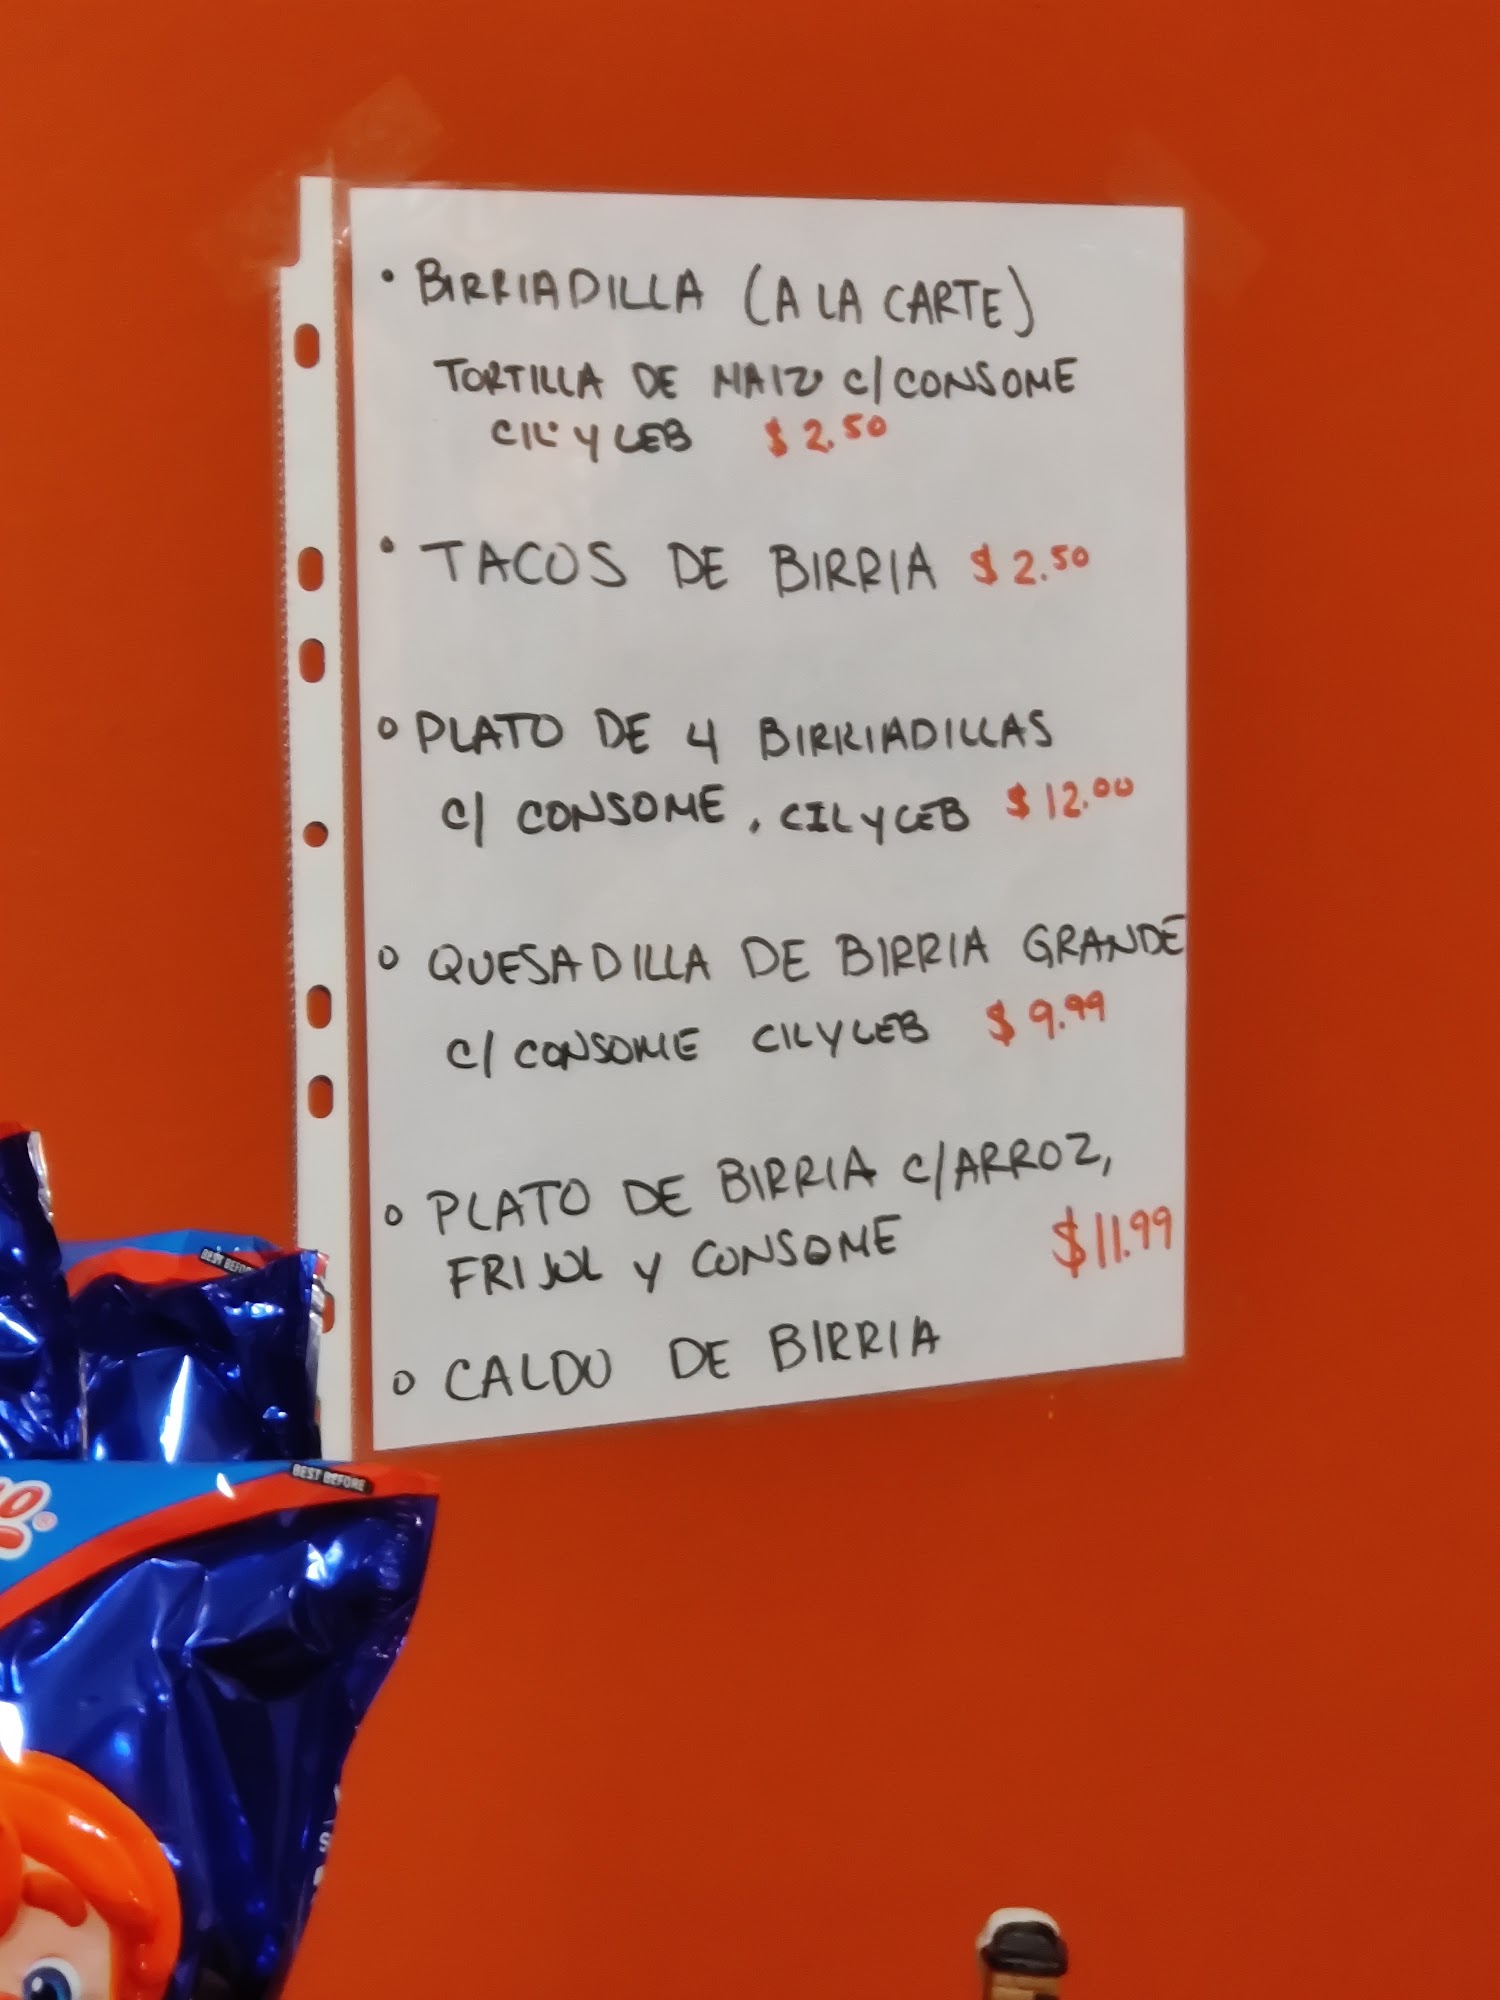 • BIRRIADILLA (A LA CARTE)
TORTILLA DE MAIZ C/CONSOME
CIL Y CEB $2.50
• TACOS DE BIRRIA $2.50
○ PLATO DE 4 BIRRIADILLAS
C/ CONSOME, CIL Y CEB $12.00
○ QUESADILLA DE BIRRIA GRANDE
C/ CONSOME CIL Y CEB $9.99
○ PLATO DE BIRRIA C/ARROZ,
FRIJOL Y CONSOME $11.99
○ CALDO DE BIRRIA
BEST BEFORE
BEST BEFORE